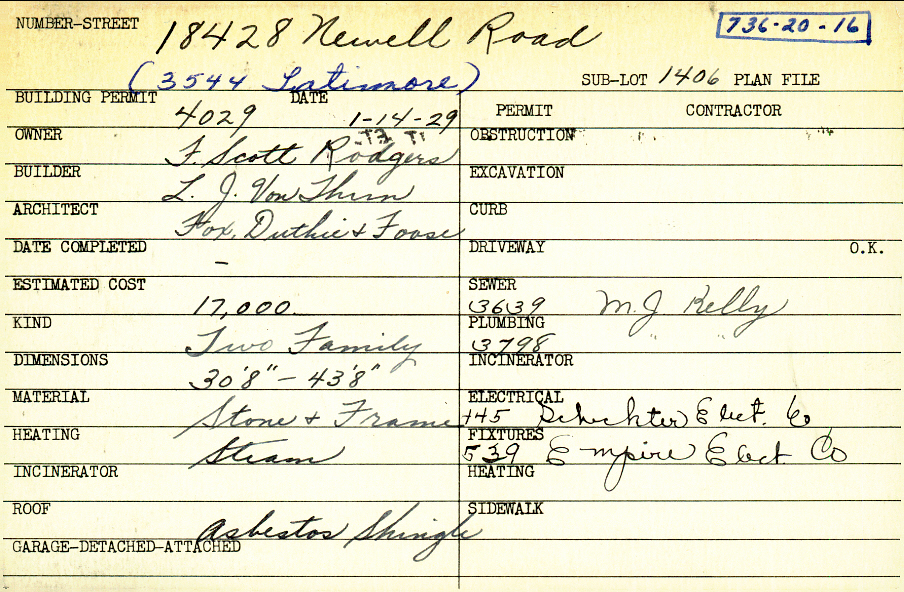 NUMBER-STREET 18428 Newell Road 736-20-16
(3544 Latimore) SUB-LOT 1406 PLAN FILE
BUILDING PERMIT 4029 DATE 1-14-29
PERMIT CONTRACTOR
OWNER F. Scott Rodgers
OBSTRUCTION
BUILDER L. J. Von Thurn
EXCAVATION
ARCHITECT Fox, Duthie & Foose
CURB
DATE COMPLETED -
DRIVEWAY O.K.
ESTIMATED COST 17,000.
SEWER 3639 M. J. Kelly
KIND Two Family
PLUMBING 3798 " "
DIMENSIONS 30'8" - 43'8"
INCINERATOR
MATERIAL Stone & Frame
ELECTRICAL Elect. Co
HEATING Steam
FIXTURES 539 Empire Elect. Co
INCINERATOR
HEATING
ROOF Asbestos Shingle
SIDEWALK
GARAGE-DETACHED-ATTACHED